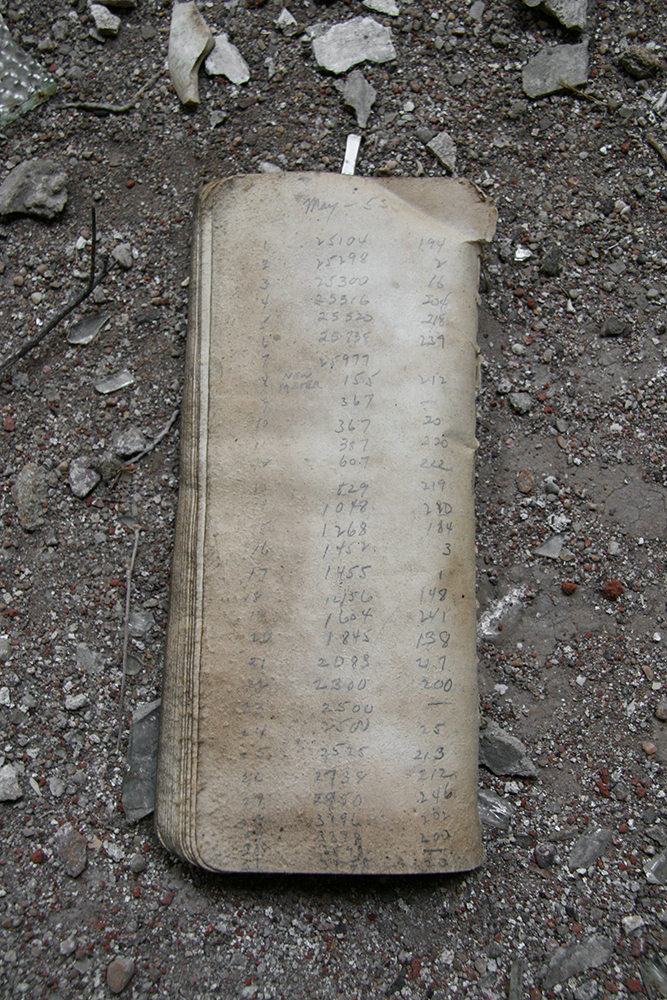 May - 53
1 25104 194
2 25298 2
3 25300 16
4 25316 204
25520 218
6 25738 239
7 25977
8 NEW METER 155 212
9 367 —
10 367 20
387 220
607 222
829 219
1048 220
1268 184
16 1452 3
17 1455 1
18 1456 148
1604 241
20 1845 138
21 2083 217
22 2300 200
23 2500 —
24 2500 25
25 2525 213
26 2738 212
27 246
28 202